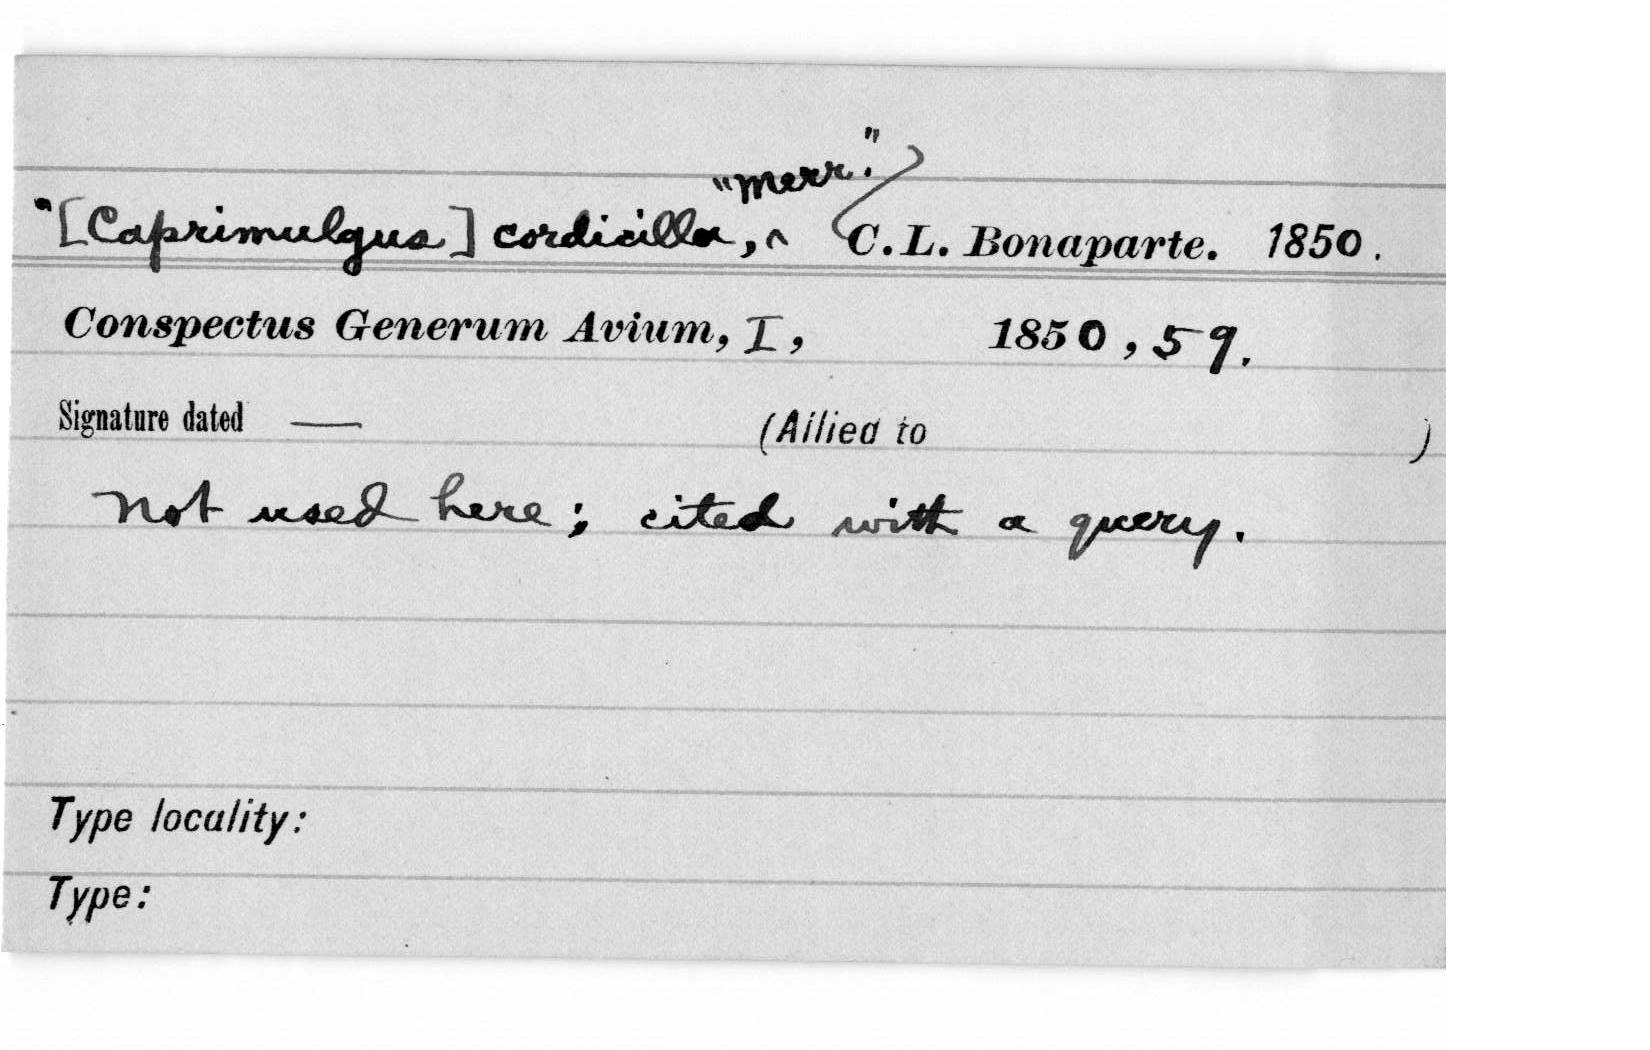 "Merr."
"[Caprimulgus] cordicilla, ^ C. L. Bonaparte. 1850.
Conspectus Generum Avium, I, 1850, 59.
Signature dated — (Allied to )
Not used here; cited with a query.
Type locality:
Type: